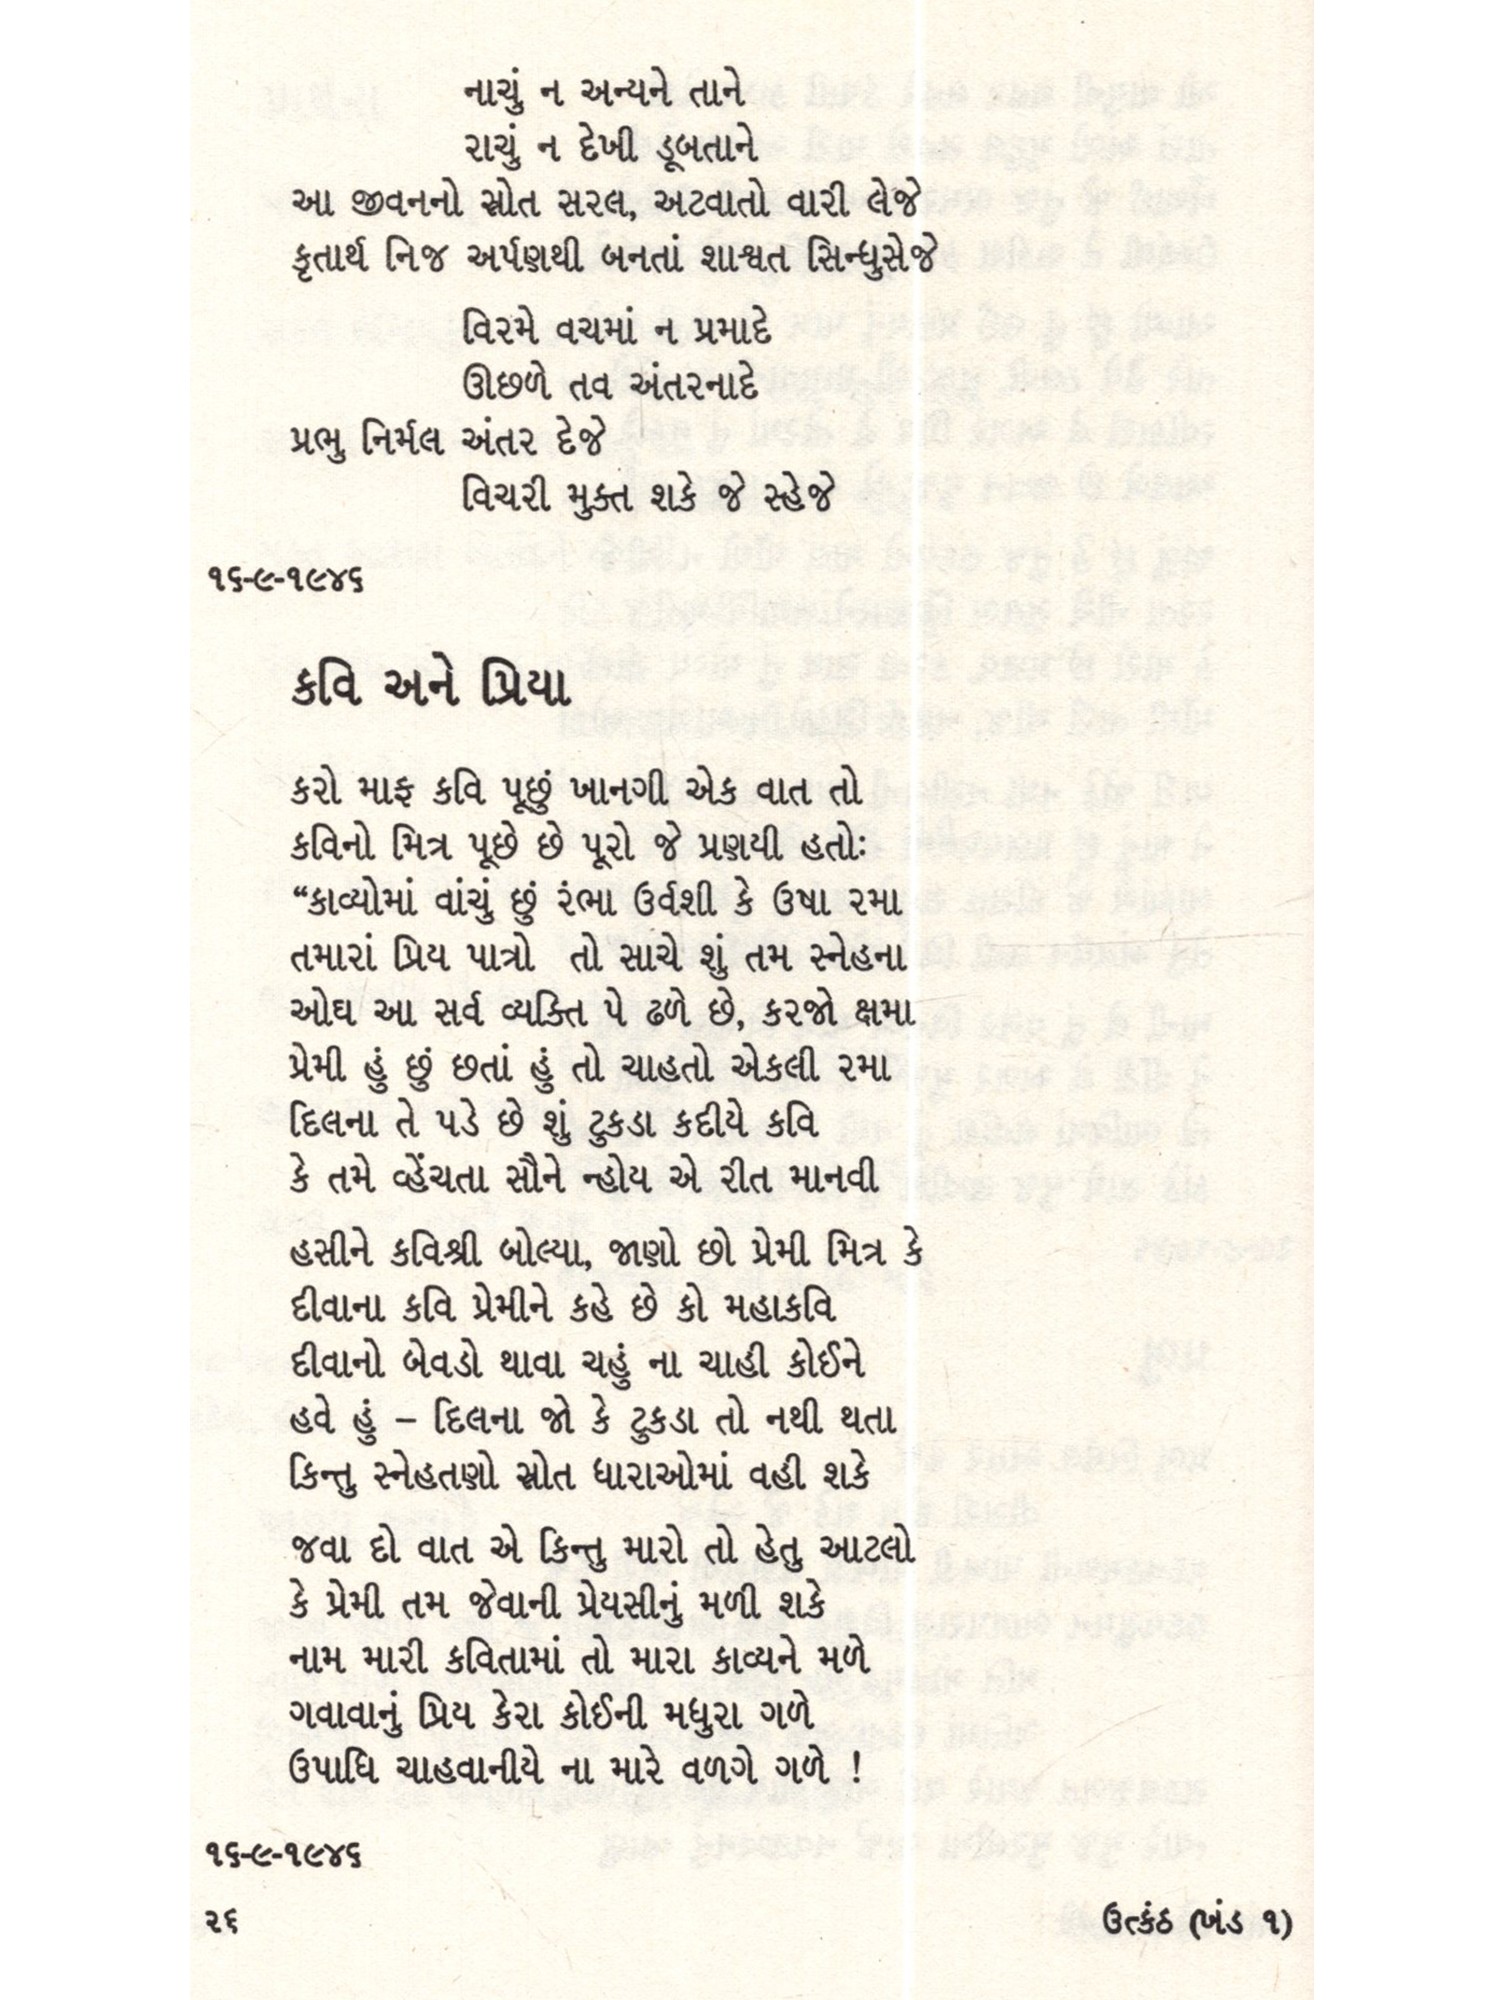 નાચું ન અન્યને તાને
રાચું ન દેખી ડૂબતાને
આ જીવનનો સ્રોત સરલ, અટવાતો વારી લેજે
કૃતાર્થ નિજ અર્પણથી બનતાં શાશ્વત સિન્ધુસેજે
વિરમે વચમાં ન પ્રમાદે
ઊછળે તવ અંતરનાદે
પ્રભુ નિર્મલ અંતર દેજે
વિચરી મુક્ત શકે જે સ્હેજે
૧૬-૯-૧૯૪૬
કવિ અને પ્રિયા
કરો માફ કવિ પૂછું ખાનગી એક વાત તો
કવિનો મિત્ર પૂછે છે પૂરો જે પ્રણયી હતોઃ
“કાવ્યોમાં વાંચું છું રંભા ઉર્વશી કે ઉષા રમા
તમારાં પ્રિય પાત્રો તો સાચે શું તમ સ્નેહના
ઓઘ આ સર્વ વ્યક્તિ પે ઢળે છે, કરજો ક્ષમા
પ્રેમી હું છું છતાં હું તો ચાહતો એકલી રમા
દિલના તે પડે છે શું ટુકડા કદીયે કવિ
કે તમે વ્હેંચતા સૌને ન્હોય એ રીત માનવી
હસીને કવિશ્રી બોલ્યા, જાણો છો પ્રેમી મિત્ર કે
દીવાના કવિ પ્રેમીને કહે છે કો મહાકવિ
દીવાનો બેવડો થાવા ચહું ના ચાહી કોઈને
હવે હું – દિલના જો કે ટુકડા તો નથી થતા
કિન્તુ સ્નેહતણો સ્રોત ધારાઓમાં વહી શકે
જવા દો વાત એ કિન્તુ મારો તો હેતુ આટલો
કે પ્રેમી તમ જેવાની પ્રેયસીનું મળી શકે
નામ મારી કવિતામાં તો મારા કાવ્યને મળે
ગવાવાનું પ્રિય કેરા કોઈની મધુરા ગળે
ઉપાધિ ચાહવાનીયે ના મારે વળગે ગળે !
૧૬-૯-૧૯૪૬
૨૬
ઉત્કંઠ (ખંડ ૧)